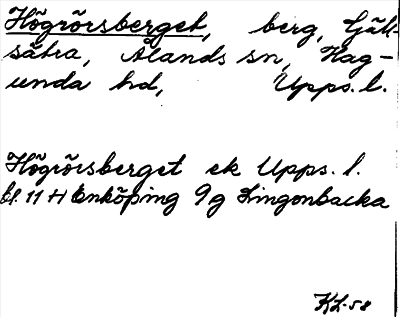 Högrörsberget, berg, Gäll-
sätra, Ålands sn, Hag-
unda hd, Upps. l.
Högrörsberget ek Upps. l.
bl. 11 H Enköping 9g Lingonbacka
KL-58